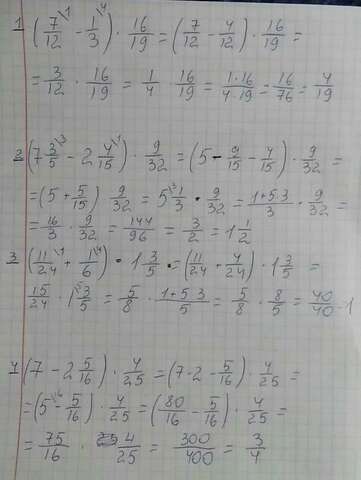 1 (7/12 \1 - 1/3 \4) · 16/19 = (7/12 - 4/12) · 16/19 =
= 3/12 · 16/19 = 1/4 · 16/19 = 1·16/4·19 = 16/76 = 4/19
2 (7 3/5 \3 - 2 4/15 \1) · 9/32 = (5 - 9/15 - 4/15) · 9/32 =
= (5 + 5/15) 9/32 = 5 \3 1/3 · 9/32 = 1+5·3/3 · 9/32 =
= 16/3 · 9/32 = 144/96 = 3/2 = 1 1/2
3 (11/24 \1 + 1/6 \4) · 1 3/5 = (11/24 + 4/24) · 1 3/5 =
15/24 · 1 \5 3/5 = 5/8 · 1+5 3/5 = 5/8 · 8/5 = 40/40 = 1
4 (7 - 2 5/16) · 4/25 = (7-2 - 5/16) · 4/25 =
= (5 \16 - 5/16) · 4/25 = (80/16 - 5/16) · 4/25 =
= 75/16 · 4/25 = 300/400 = 3/4